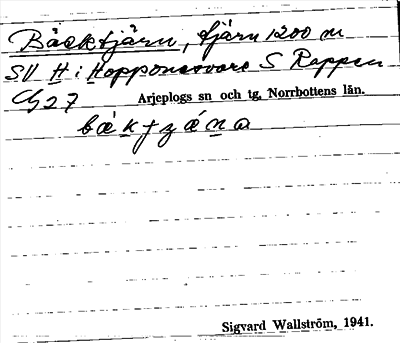 Bäcktjärn, tjärn 1200 m
SV H i Hopponesvare S Rappen
Cg 27 Arjeplogs sn och tg, Norrbottens län.
Sigvard Wallström, 1941.